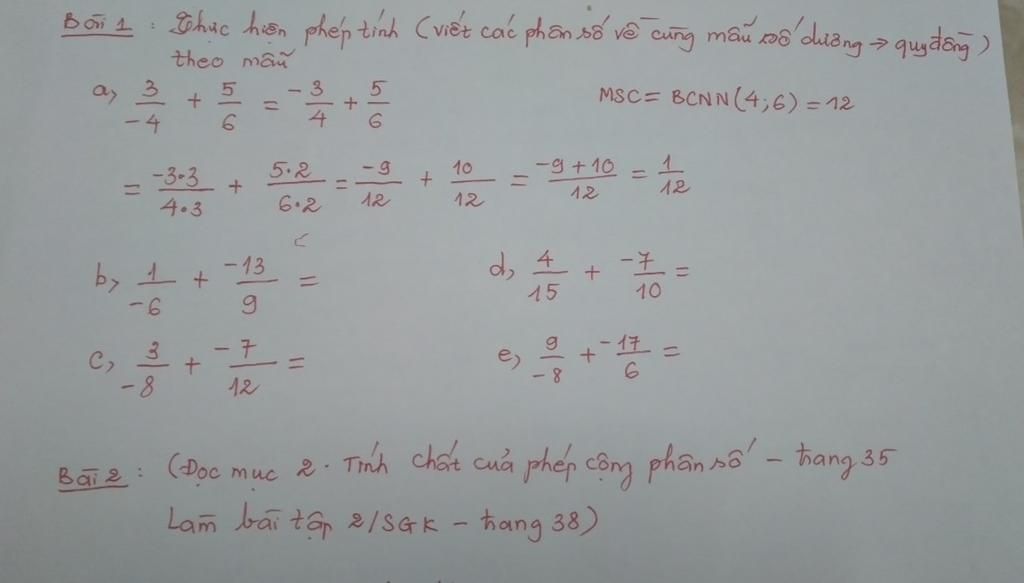 Bài 1 : Thực hiện phép tính (viết các phân số về cùng mẫu số dương → quy đồng)
theo mẫu
a, 3/-4 + 5/6 = -3/4 + 5/6 MSC = BCNN(4;6) = 12
= -3·3/4·3 + 5·2/6·2 = -9/12 + 10/12 = -9+10/12 = 1/12
b, 1/-6 + -13/9 = d, 4/15 + -7/10 =
c, 3/-8 + -7/12 = e, 9/-8 + -17/6 =
Bài 2 : (Đọc mục 2. Tính chất của phép cộng phân số - trang 35
Làm bài tập 2/SGK - trang 38)